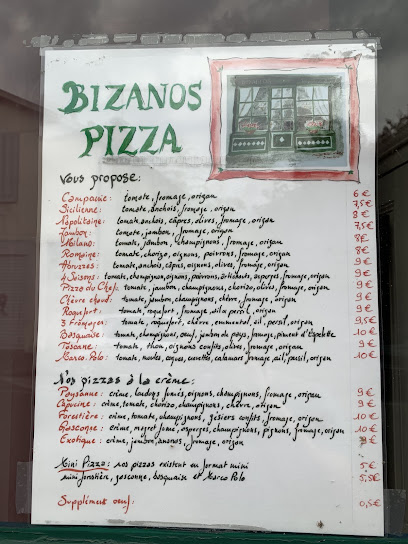 BIZANOS
PIZZA
Vous propose:
Campanie: tomate, fromage, origan 6€
Sicilienne: tomate, anchois, fromage, origan 7,5€
Napolitaine: tomate, anchois, câpres, olives, fromage, origan 8€
Jambon: tomate, jambon, fromage, origan 7,5€
Milano: tomate, jambon, champignons, fromage, origan 8€
Romaine: tomate, chorizo, oignons, poivrons, fromage, origan 8€
Abruzes: tomate, anchois, câpres, oignons, olives, fromage, origan 9€
4 Saisons: tomate, champignons, oignons, poivrons, artichauts, asperges, fromage, origan 9€
Pizza du Chef: tomate, jambon, champignons, chorizo, olives, fromage, origan 9€
Chèvre chaud: tomate, jambon, champignons, chèvre, fromage, origan 9€
Roquefort: tomate, roquefort, fromage, ail, persil, origan 9€
3 Fromages: tomate, roquefort, chèvre, emmental, ail, persil, origan 9,5€
Basquaise: tomate, champignons, oeuf, jambon de pays, fromage, piment d'Espelette 10€
Toscane: tomate, thon, oignons confits, olives, fromage, origan 9€
Marco-Polo: tomate, moules, coques, crevettes, calamars, fromage, ail, persil, origan 10€
Nos pizzas à la crème:
Paysanne: crème, lardons fumés, oignons, champignons, fromage, origan 9€
Capucine: crème, tomate, chorizo, champignons, chèvre, origan 9€
Forestière: crème, tomate, champignons, gésiers confits, fromage, origan 10€
Gasconne: crème, magret fumé, asperges, champignons, pignons, fromage, origan 10€
Exotique: crème, jambon, ananas, fromage, origan 9€
Mini Pizza: nos pizzas existent en format mini 5€
mini forestière, gasconne, basquaise et Marco Polo 5,5€
Supplément oeuf: 0,5€